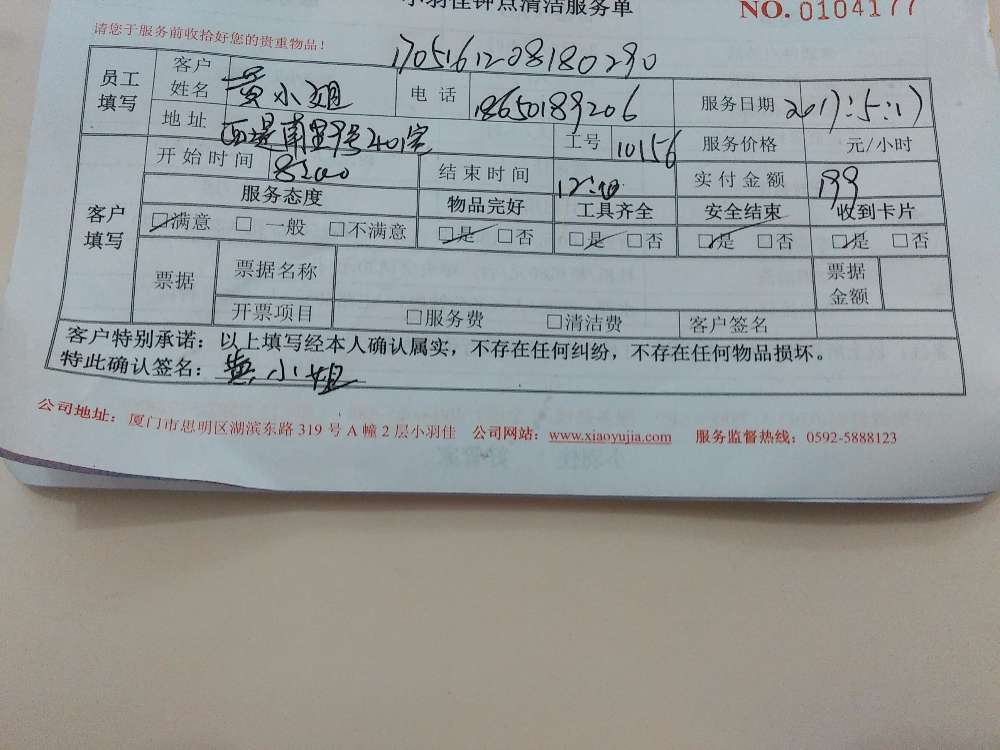 小羽佳钟点清洁服务单
NO. 0104177
请您于服务前收拾好您的贵重物品!
1705161208180290
员工填写 客户姓名 黄小姐 电话 18650189206 服务日期 2017:5:17
地址 西堤南里9号401室 工号 10156 服务价格 元/小时
开始时间 8:00 结束时间 12:00 实付金额 199
客户填写 服务态度 物品完好 工具齐全 安全结束 收到卡片
□满意 □ 一般 □不满意 □是 □否 □是 □否 □是 □否 □是 □否
票据 票据名称 票据金额
开票项目 □服务费 □清洁费 客户签名
客户特别承诺：以上填写经本人确认属实，不存在任何纠纷，不存在任何物品损坏。
特此确认签名：黄小姐
公司地址：厦门市思明区湖滨东路 319 号 A 幢 2 层小羽佳 公司网站：www.xiaoyujia.com 服务监督热线：0592-5888123